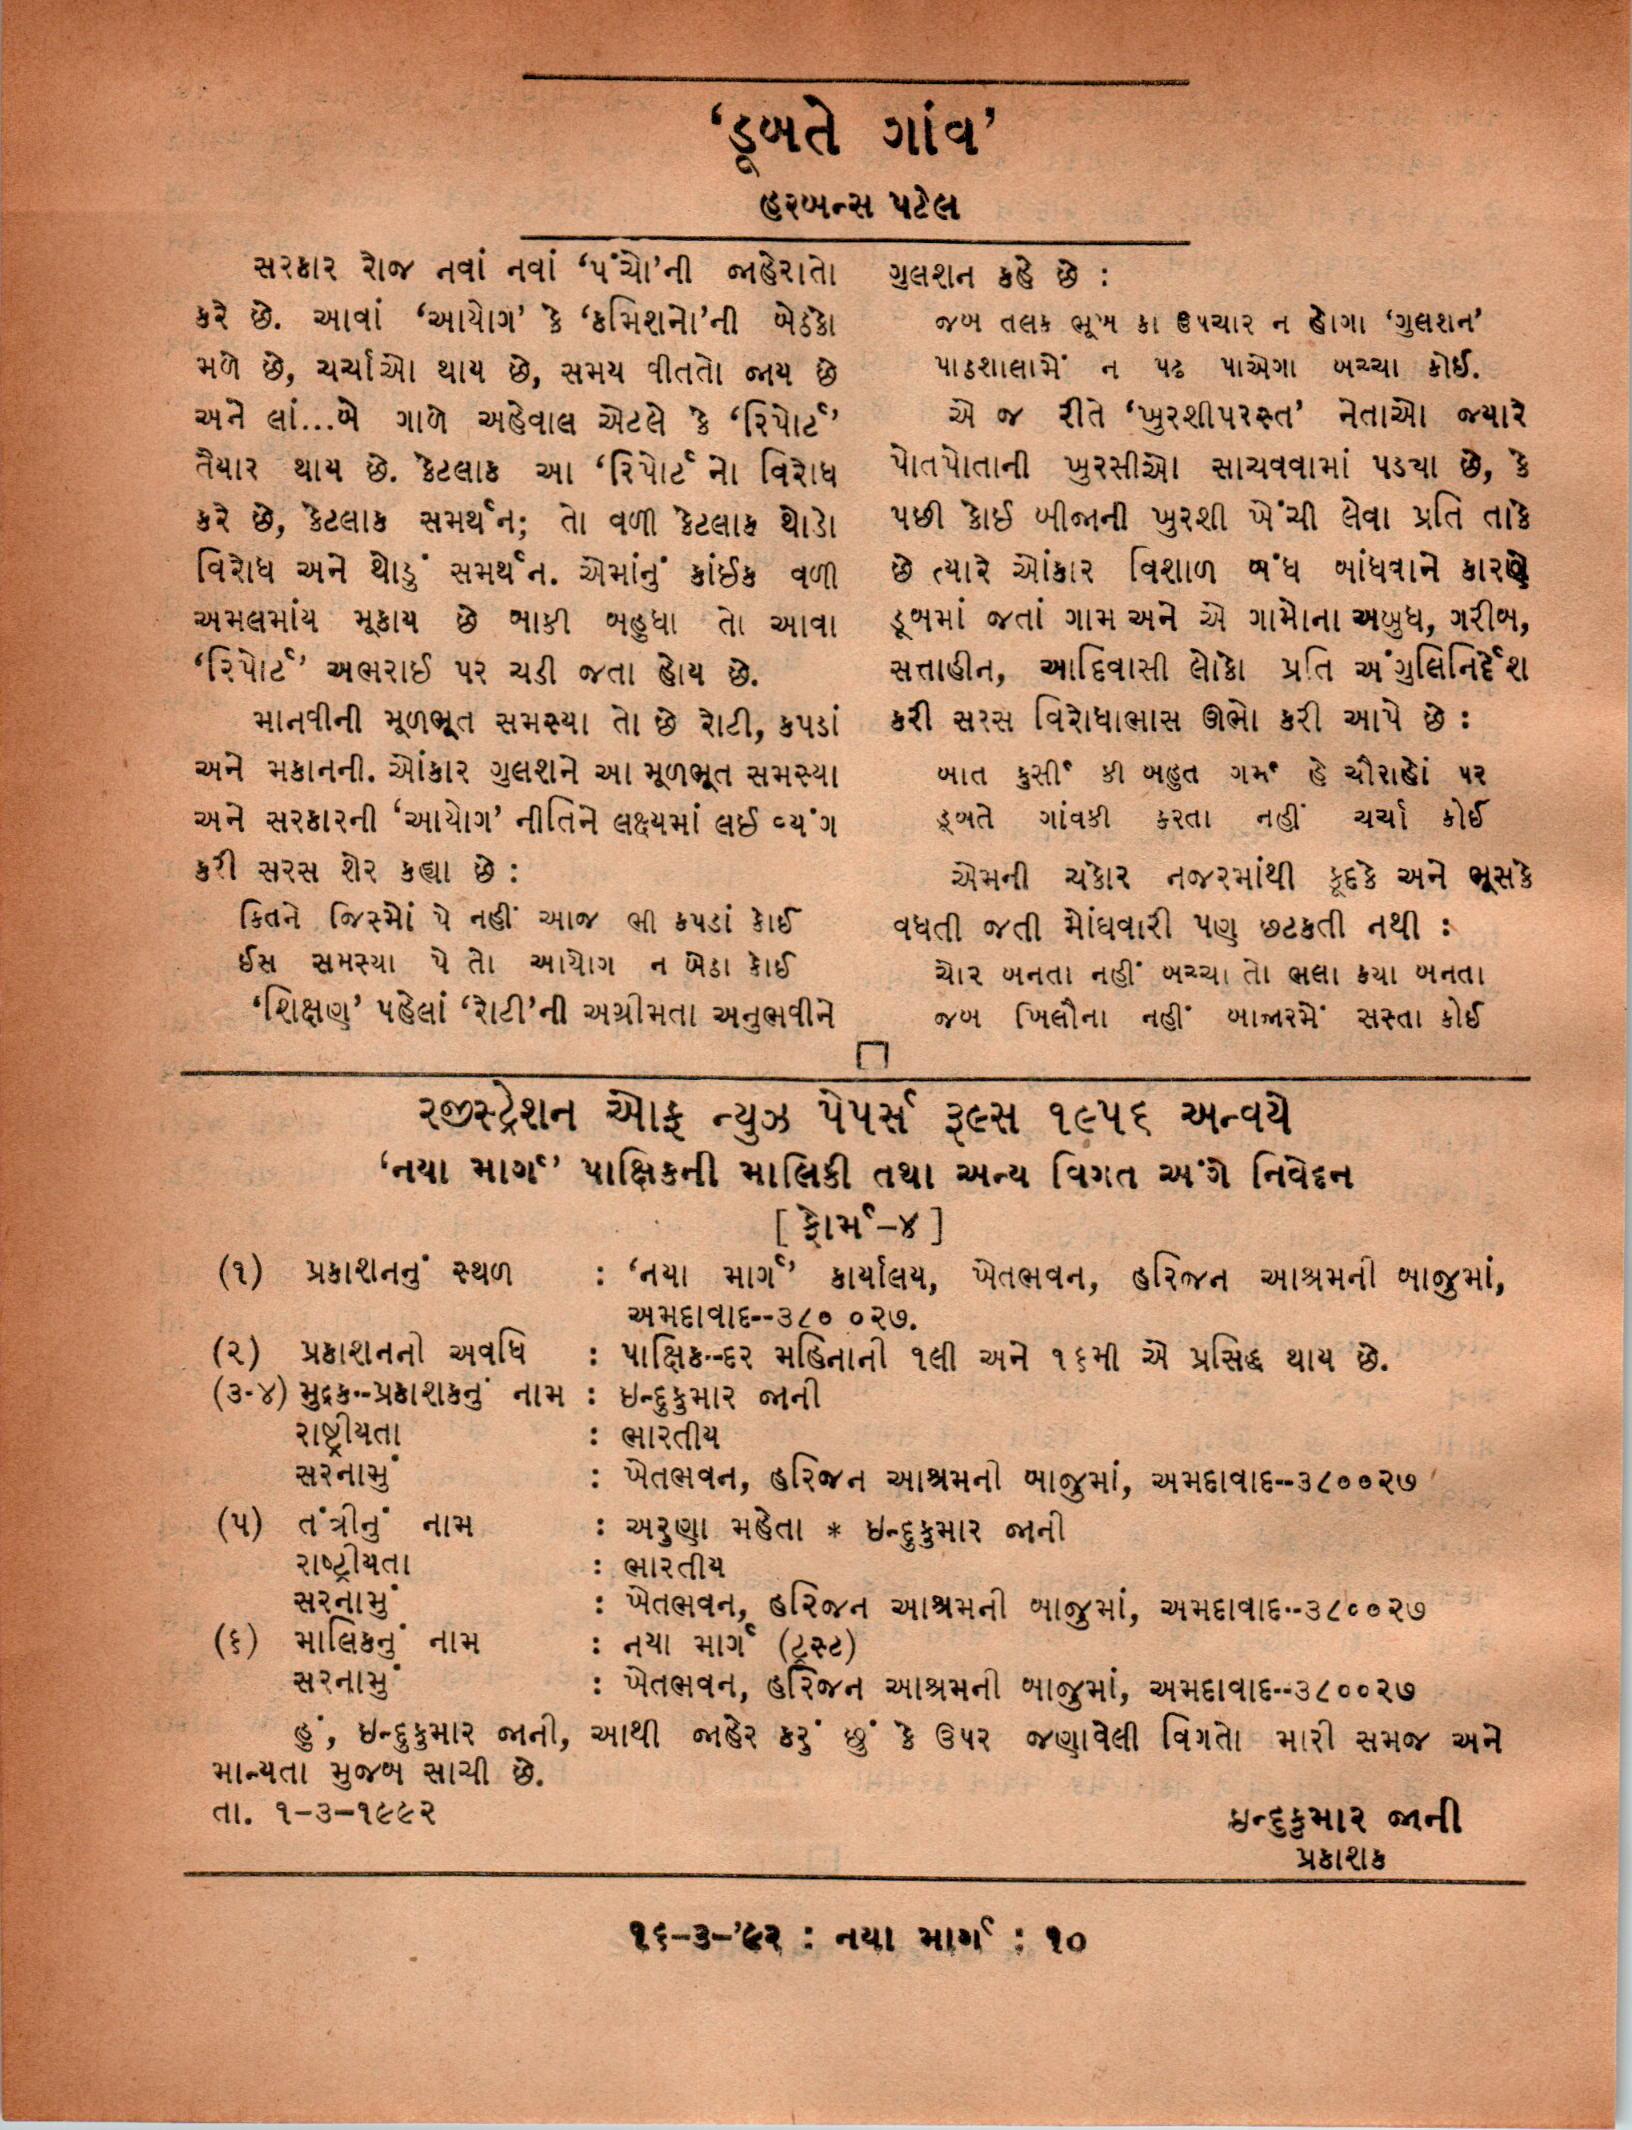 ‘ડૂબતે ગાંવ’
હરબન્સ પટેલ
સરકાર રોજ નવાં નવાં ‘પંચો’ની જાહેરાતો
કરે છે. આવાં ‘આયોગ’ કે ‘કમિશનો’ની બેઠકો
મળે છે, ચર્ચાઓ થાય છે, સમય વીતતો જાય છે
અને લાં...બે ગાળે અહેવાલ એટલે કે ‘રિપોર્ટ’
તૈયાર થાય છે. કેટલાક આ ‘રિપોર્ટ નો વિરોધ
કરે છે, કેટલાક સમર્થન; તો વળી કેટલાક થોડો
વિરોધ અને થોડું સમર્થન. એમાંનું કાંઈક વળી
અમલમાંય મૂકાય છે બાકી બહુધા તો આવા
‘રિપોર્ટ’ અભરાઈ પર ચડી જતા હોય છે.
માનવીની મૂળભૂત સમસ્યા તો છે રોટી, કપડાં
અને મકાનની. ઓંકાર ગુલશને આ મૂળભૂત સમસ્યા
અને સરકારની ‘આયોગ’ નીતિને લક્ષ્યમાં લઈ વ્યંગ
કરી સરસ શેર કહ્યા છે :
કિતને જિસ્મોં પે નહીં આજ ભી કપડાં કોઈ
ઈસ સમસ્યા પે તો આયોગ ન બેઠા કોઈ
‘શિક્ષણ’ પહેલાં ‘રોટી’ની અગ્રીમતા અનુભવીને
ગુલશન કહે છે :
જબ તલક ભૂખ કા ઉપચાર ન હોગા ‘ગુલશન’
પાઠશાલામેં ન પઢ પાએગા બચ્ચા કોઈ.
એ જ રીતે ‘ખુરશીપરસ્ત’ નેતાઓ જ્યારે
પોતપોતાની ખુરસીઓ સાચવવામાં પડ્યા છે, કે
પછી કોઈ બીજાની ખુરશી ખેંચી લેવા પ્રતિ તાકે
છે ત્યારે ઓંકાર વિશાળ બંધ બાંધવાને કારણે
ડૂબમાં જતાં ગામ અને એ ગામોના અબુધ, ગરીબ,
સત્તાહીન, આદિવાસી લોકો પ્રતિ અંગુલિનિર્દેશ
કરી સરસ વિરોધાભાસ ઊભો કરી આપે છે :
બાત કુર્સી કી બહુત ગર્મ હે ચૌરાહોં પર
ડૂબતે ગાંવકી કરતા નહીં ચર્ચા કોઈ
એમની ચકોર નજરમાંથી કૂદકે અને ભૂસકે
વધતી જતી મોંઘવારી પણ છટકતી નથી :
ચોર બનતા નહીં બચ્ચા તો ભલા ક્યા બનતા
જબ ખિલૌના નહીં બાજારમેં સસ્તા કોઈ
રજીસ્ટ્રેશન ઓફ ન્યુઝ પેપર્સ રૂલ્સ ૧૯૫૬ અન્વયે
‘નયા માર્ગ’ પાક્ષિકની માલિકી તથા અન્ય વિગત અંગે નિવેદન
[ ફોર્મ-૪ ]
(૧) પ્રકાશનનું સ્થળ : ‘નયા માર્ગ’ કાર્યાલય, ખેતભવન, હરિજન આશ્રમની બાજુમાં,
અમદાવાદ--૩૮૦ ૦૨૭.
(૨) પ્રકાશનની અવધિ : પાક્ષિક--દર મહિનાની ૧લી અને ૧૬મી એ પ્રસિદ્ધ થાય છે.
(૩-૪) મુદ્રક--પ્રકાશકનું નામ : ઇન્દુકુમાર જાની
રાષ્ટ્રીયતા : ભારતીય
સરનામું : ખેતભવન, હરિજન આશ્રમની બાજુમાં, અમદાવાદ--૩૮૦૦૨૭
(૫) તંત્રીનું નામ : અરુણા મહેતા * ઇન્દુકુમાર જાની
રાષ્ટ્રીયતા : ભારતીય
સરનામું : ખેતભવન, હરિજન આશ્રમની બાજુમાં, અમદાવાદ--૩૮૦૦૨૭
(૬) માલિકનું નામ : નયા માર્ગ (ટ્રસ્ટ)
સરનામું : ખેતભવન, હરિજન આશ્રમની બાજુમાં, અમદાવાદ--૩૮૦૦૨૭
હું, ઇન્દુકુમાર જાની, આથી જાહેર કરું છું કે ઉપર જણાવેલી વિગતો મારી સમજ અને
માન્યતા મુજબ સાચી છે.
તા. ૧-૩-૧૯૯૨
ઇન્દુકુમાર જાની
પ્રકાશક
૧૬-૩-’૯૨ : નયા માર્ગ : ૧૦